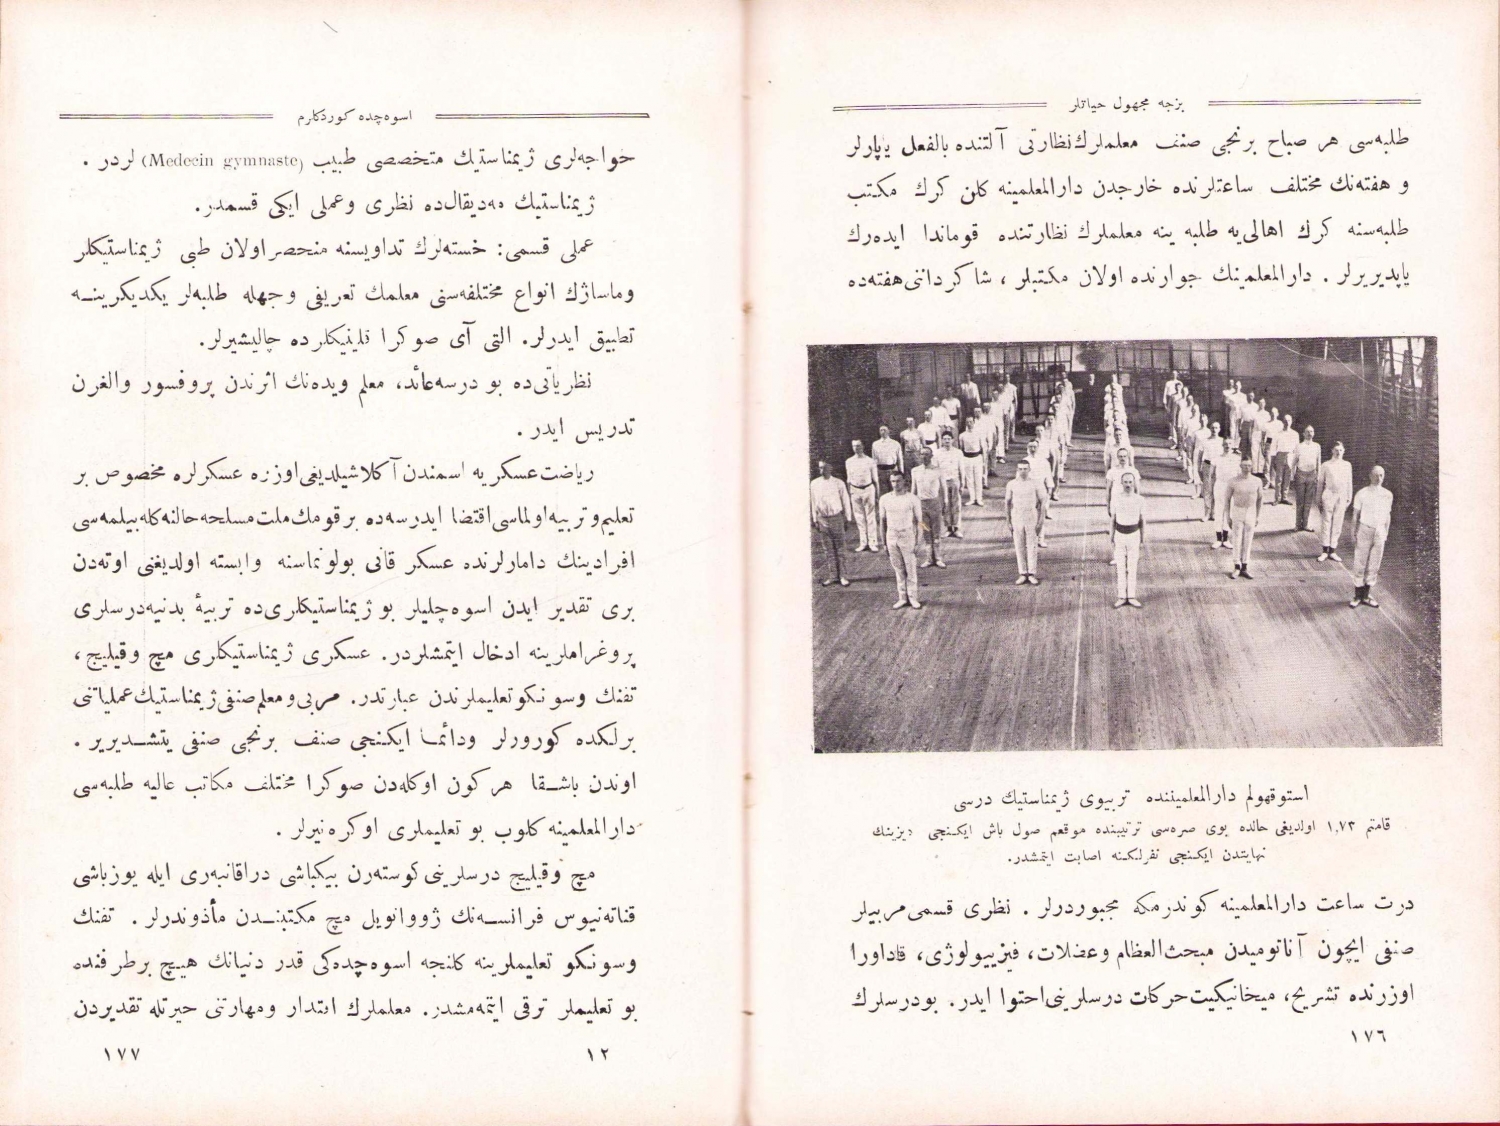 بزجه مجهول حیاتلر
طلبه‌سی هر صباح برنجی صنف معلملرك نظارتی آلتنده بالفعل یاپارلر
و هفته‌نك مختلف ساعتلرنده خارجدن دارالمعلمینه كلن كرك مكتب
طلبه‌سنه كرك اهالی‌یه طلبه ینه معلملرك نظارتنده قوماندا ایده‌رك
یاپدیریرلر . دارالمعلمینك جوارنده اولان مكتبلر ، شاكرداننی هفته‌ده
استوقهولم دارالمعلمیننده تربیوی ژیمناستیك درسی
قامتم ١,٧٣ اولدیغی حالده بوی صره‌سی ترتیبنده موقعم صول باش ایكنجی دیزینك
نهایتندن ایكنجی نفرلكنه اصابت ایتمشدر.
درت ساعت دارالمعلمینه كوندرمكه مجبوردرلر . نظری قسمی مربیلر
صنفی ایچون آناتومیدن مبحث‌العظام وعضلات، فیزیولوژی، قاداورا
اوزرنده تشریح، میخانیكیت حركات درسلرینی احتوا ایدر. بودرسلرك
١٧٦
اسوه‌چده كوردكلرم
خواجه‌لری ژیمناستیك متخصصی طبیب (Medecin gymnaste) لردر .
ژیمناستیك مه‌دیقال‌ده نظری وعملی ایكی قسمدر.
عملی قسمی: خسته‌لرك تداویسنه منحصر اولان طبی ژیمناستیكلر
وماساژك انواع مختلفه‌سنی معلمك تعریفی وجهله طلبه‌لر یكدیكرینـه
تطبیق ایدرلر. التی آی صوكرا قلینیكلرده چالیشیرلر.
نظریاتی‌ده بو درسه‌عائد، معلم ویده‌نك اثرندن پروفسور والغرن
تدریس ایدر .
ریاضت عسكریه اسمندن آكلاشیلدیغی اوزره عسكرلره مخصوص بر
تعلیم و تربیه اولماسی اقتضا ایدرسه‌ده بر قومك ملت مسلحه حالنه كله بیلمه‌سی
افرادینك دامارلرنده عسكر قانی بولونماسنه وابسته اولدیغنی اوته‌دن
بری تقدیر ایدن اسوه‌چلیلر بو ژیمناستیكلری‌ده تربیهٔ بدنیه‌درسلری
پروغراملرینه ادخال ایتمشلردر. عسكری ژیمناستیكلری مچ وقیلیج،
تفنك وسونكو تعلیملرندن عبارتدر. مربی و معلم صنفی ژیمناستیك عملیاتنی
برلكده كورورلر ودائمـا ایكنجی صنف برنجی صنفی یتشـدیریر .
اوندن باشـقا هركون اوكله‌دن صوكرا مختلف مكاتب عالیه طلبه‌سی
دارالمعلمینه كلوب بو تعلیملری اوكره‌نیرلر .
مچ وقیلیج درسلرینی كوسته‌رن بیكباشی دراقانبه‌ری ایله یوزباشی
قناته‌نیوس فرانسـه‌نك ژووانویل مچ مكتبنـدن مأذوندرلر . تفنك
وسونكو تعلیملرینه كلنجه اسوه‌چده‌كی قدر دنیانك هیچ بر طرفنده
بو تعلیملر ترقی ایتمه‌مشدر. معلملرك اقتدار ومهارتنی حیرتله تقدیردن
١٢
١٧٧